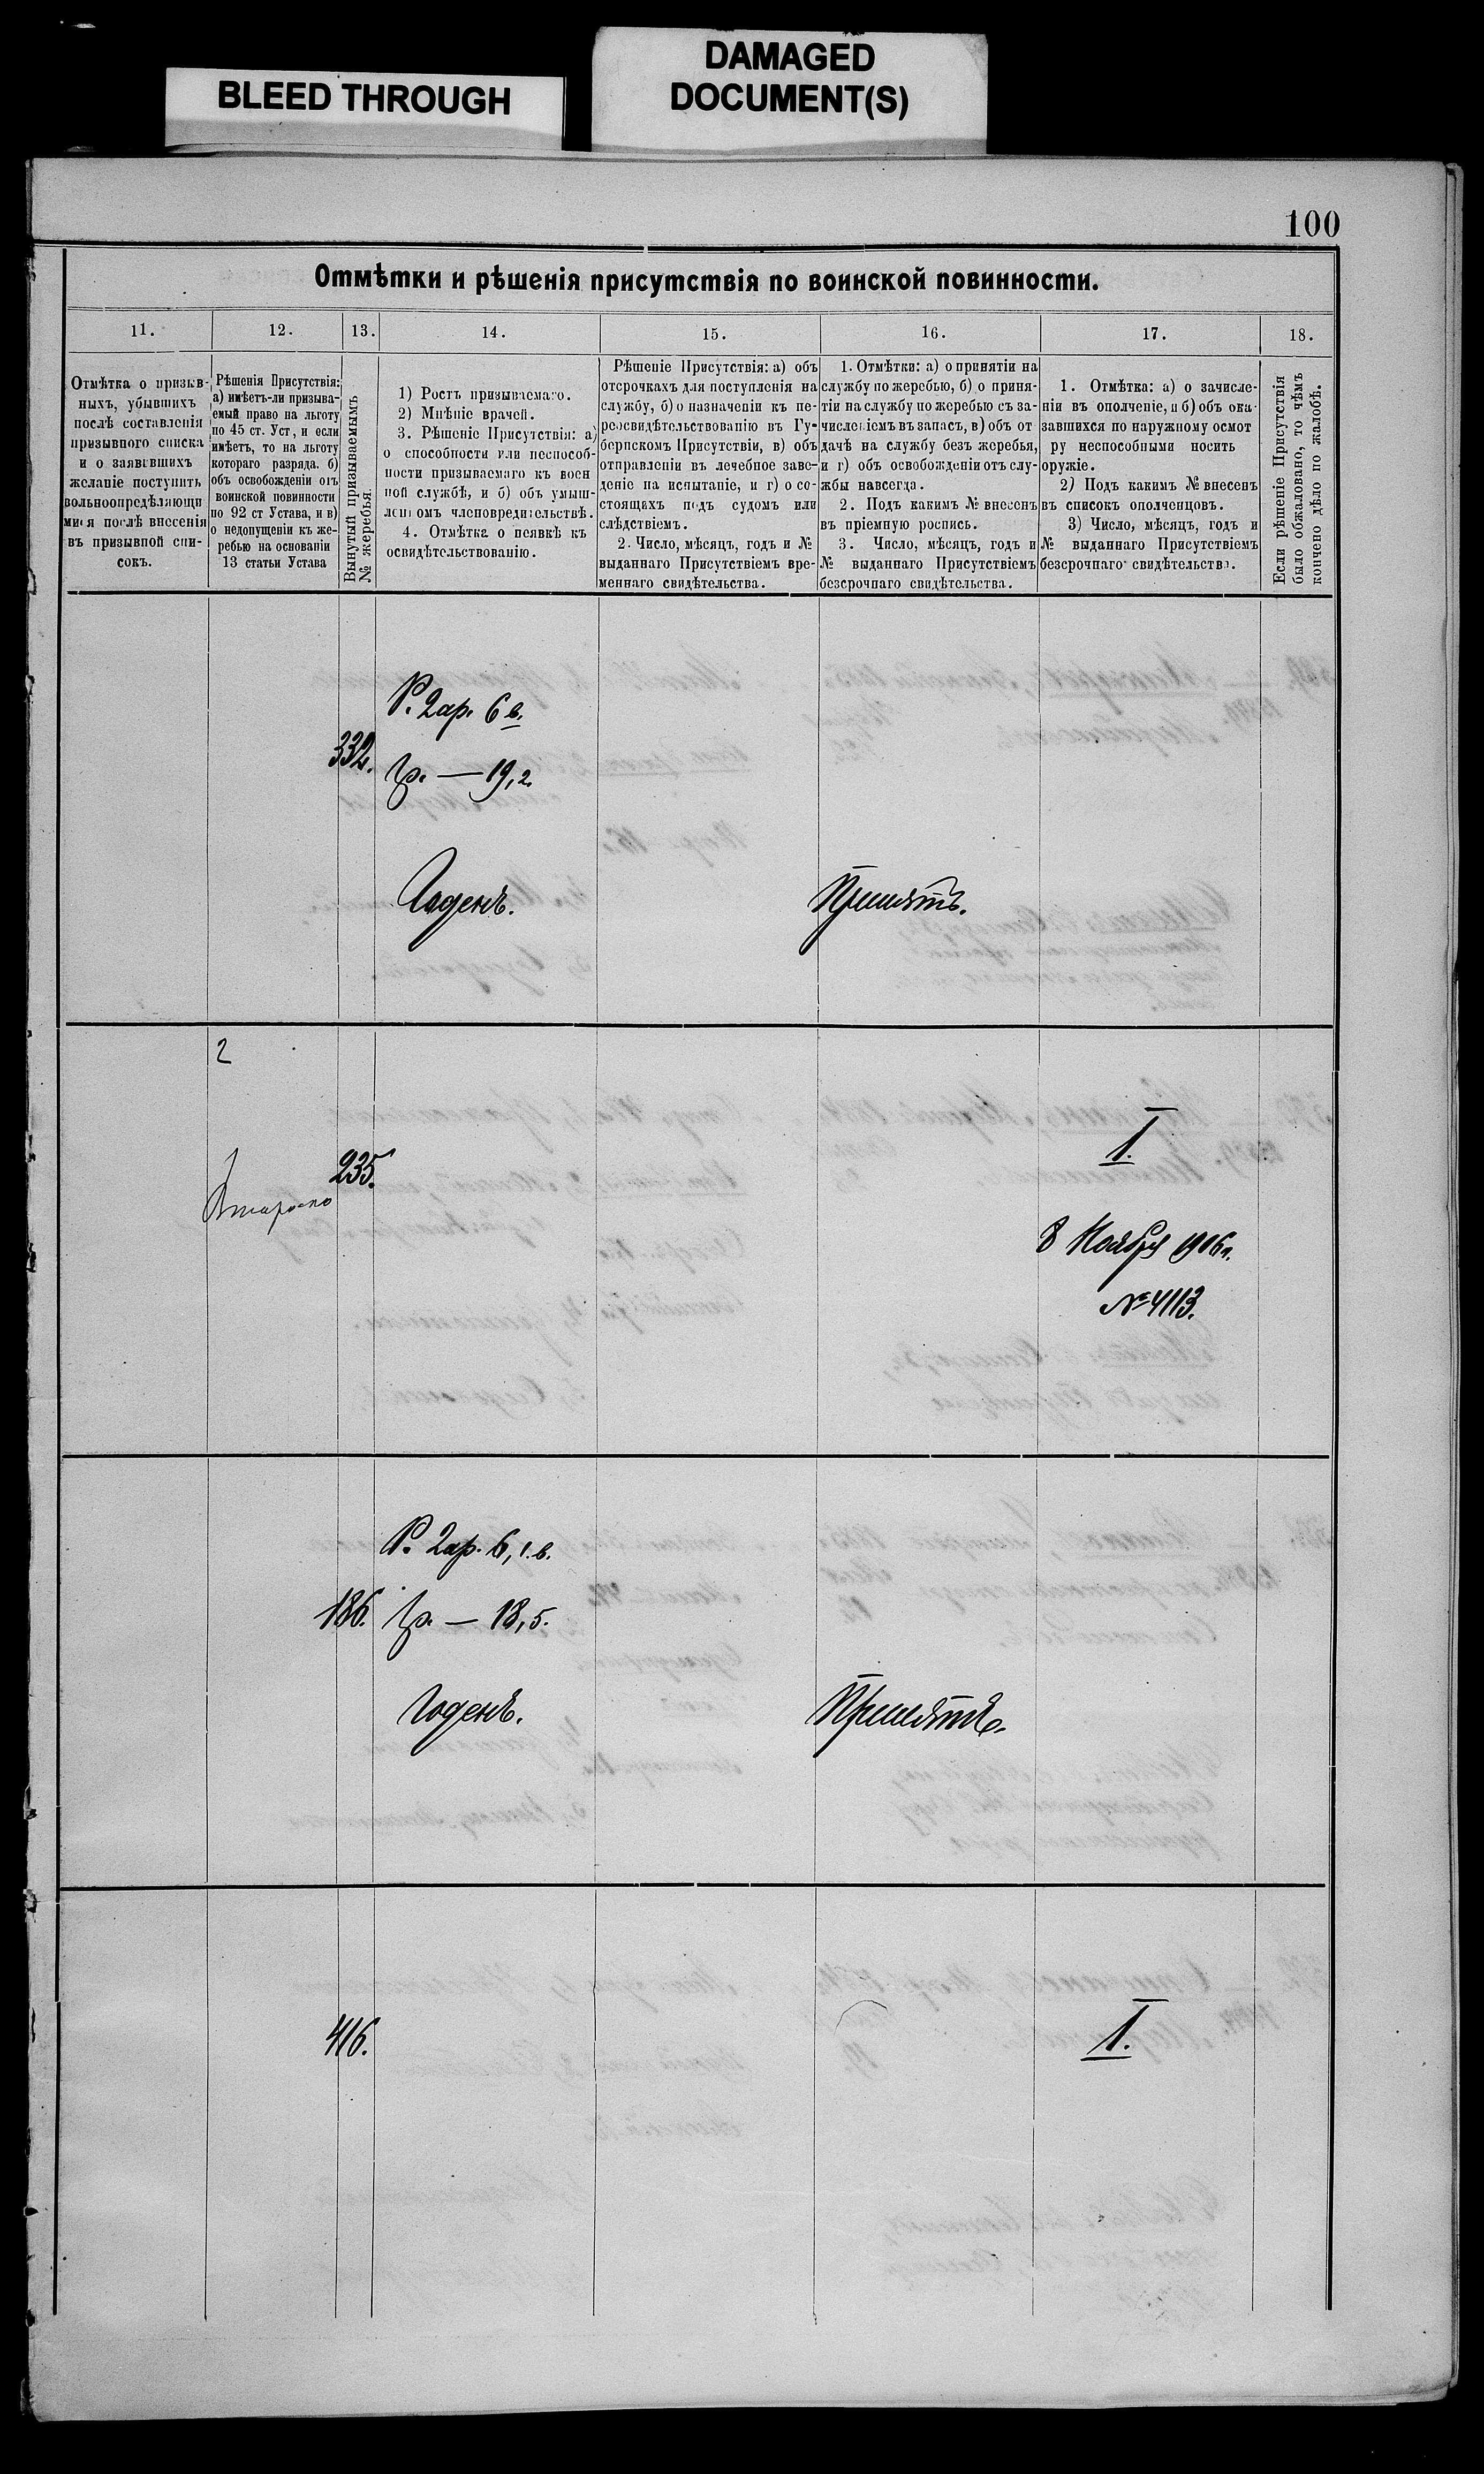 BLEED THROUGH
DAMAGED
DOCUMENT(S)
100
Отмѣтки и рѣшенія присутствія по воинской повинности.
11.
12.
13.
14.
15.
16.
17.
18.
Отмѣтка о призыв-
ныхъ, убывшихъ
послѣ составленія
призывного списка
и о заявившихъ
желаніе поступить
вольноопредѣляющи
мися послѣ внесенія
въ призывной спи-
сокъ.
Рѣшенія Присутствія:
а) имѣетъ-ли призыва-
емый право на льготу
по 45 ст. Уст, и если
имѣетъ, то на льготу
котораго разряда. б)
объ освобожденіи отъ
воинской повинности
по 92 ст Устава, и в)
о недопущеніи къ же-
ребью на основаніи
13 статьи Устава
Вынутый призываемымъ
№ жеребья.
1) Ростъ призываемаго.
2) Мнѣніе врачей.
3. Рѣшеніе Присутствія: а)
о способности или неспособ-
ности призываемаго къ воен
ной службѣ, и б) объ умыш-
леномъ членовредительствѣ.
4. Отмѣтка о неявкѣ къ
освидѣтельствованію.
Рѣшеніе Присутствія: а) объ
отсрочкахъ для поступленія на
службу, б) о назначеніи къ пе-
реосвидѣтельствованію въ Гу-
бернскомъ Присутствіи, в) объ
отправленіи въ лечебное заве-
деніе на испытаніе, и г) о со-
стоящахъ подъ судомъ или
слѣдствіемъ.
2. Число, мѣсяцъ, годъ и №
выданнаго Присутствіемъ вре-
меннаго свидѣтельства.
1. Отмѣтки: а) о принятіи на
службу по жеребью, б) о приня-
тіи на службу по жеребью съ за-
численіемъ въ запасъ, в) объ от
дачѣ на службу безъ жеребья,
и г) объ освобожденіи отъ слу-
жбы навсегда.
2. Подъ какимъ № внесенъ
въ пріемную роспись.
3. Число, мѣсяцъ, годъ и
№ выданнаго Присутствіемъ
безсрочнаго свидѣтельства.
1. Отмѣтка: а) о зачисле-
ніи въ ополченіе, и б) объ ока-
завшихся по наружному осмот
ру неспособными носить
оружіе.
2) Подъ какимъ № внесенъ
въ списокъ ополченцовъ.
3) Число, мѣсяцъ, годъ и
№ выданнаго Присутствіемъ
безсрочнаго свидѣтельства.
Если рѣшеніе Присутствія
было обжаловано, то чѣмъ
кончено дѣло по жалобѣ.
332.
Р. 2ар. 6 в.
гр. — 19,2.
Годенъ.
Принятъ.
2
235.
I.
8 Ноября 1906 г.
№ 4113.
186.
Р. 2ар. 6,1.в.
гр. — 18,5.
Годенъ.
Принятъ.
416.
I.